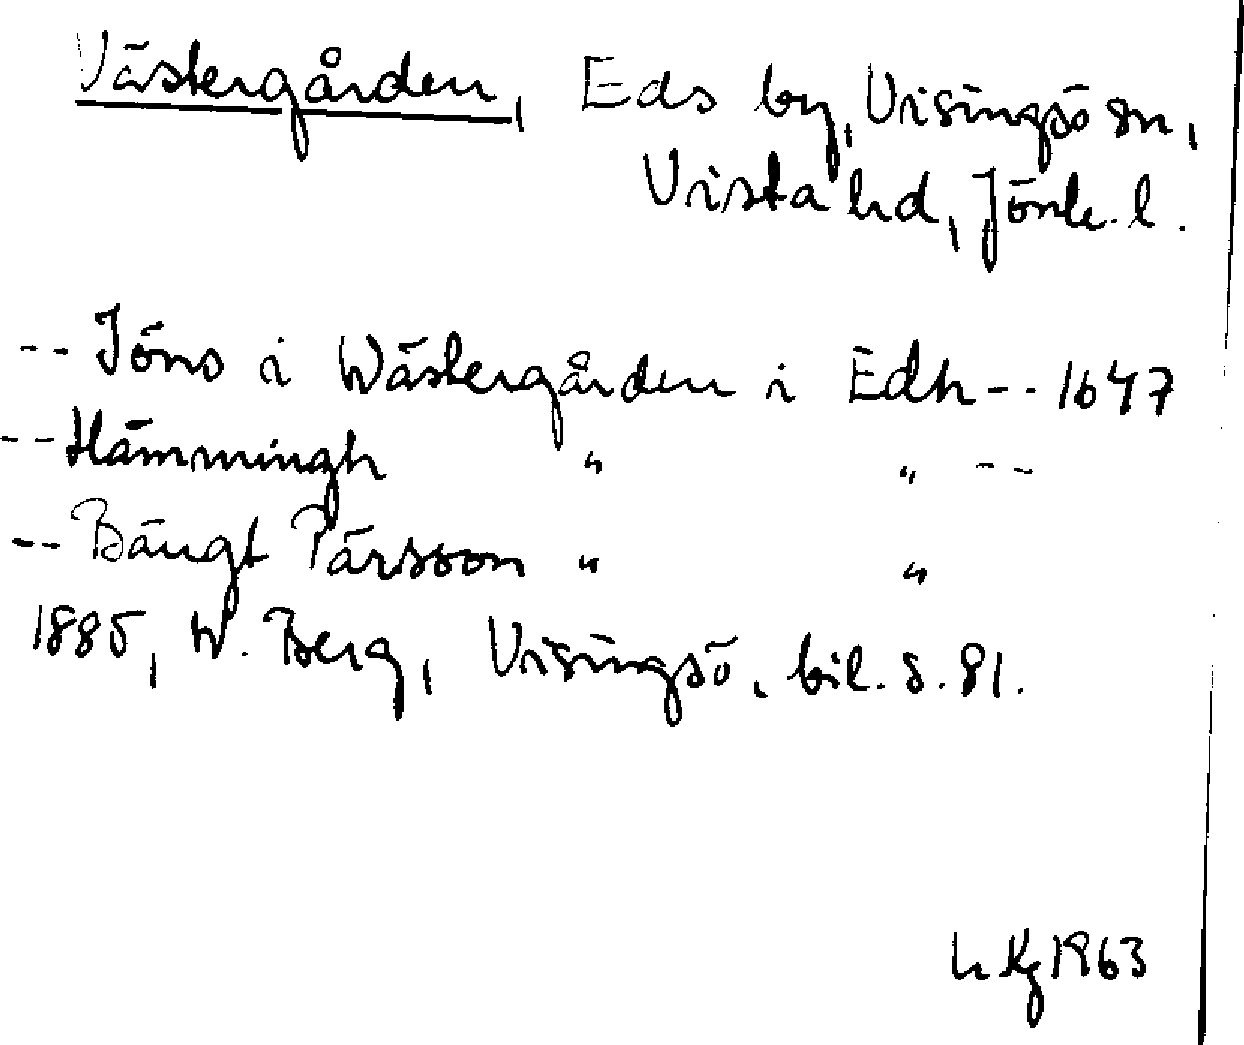 Västergården, Eds by, Visingsö sn,
Vista hd, Jönk. l.
-- Jöns i Wästergården i Edh -- 1647
-- Hämmingh " " --
-- Bängt Pärsson " "
1885, W. Berg, Visingsö, bil. s. 81.
1963